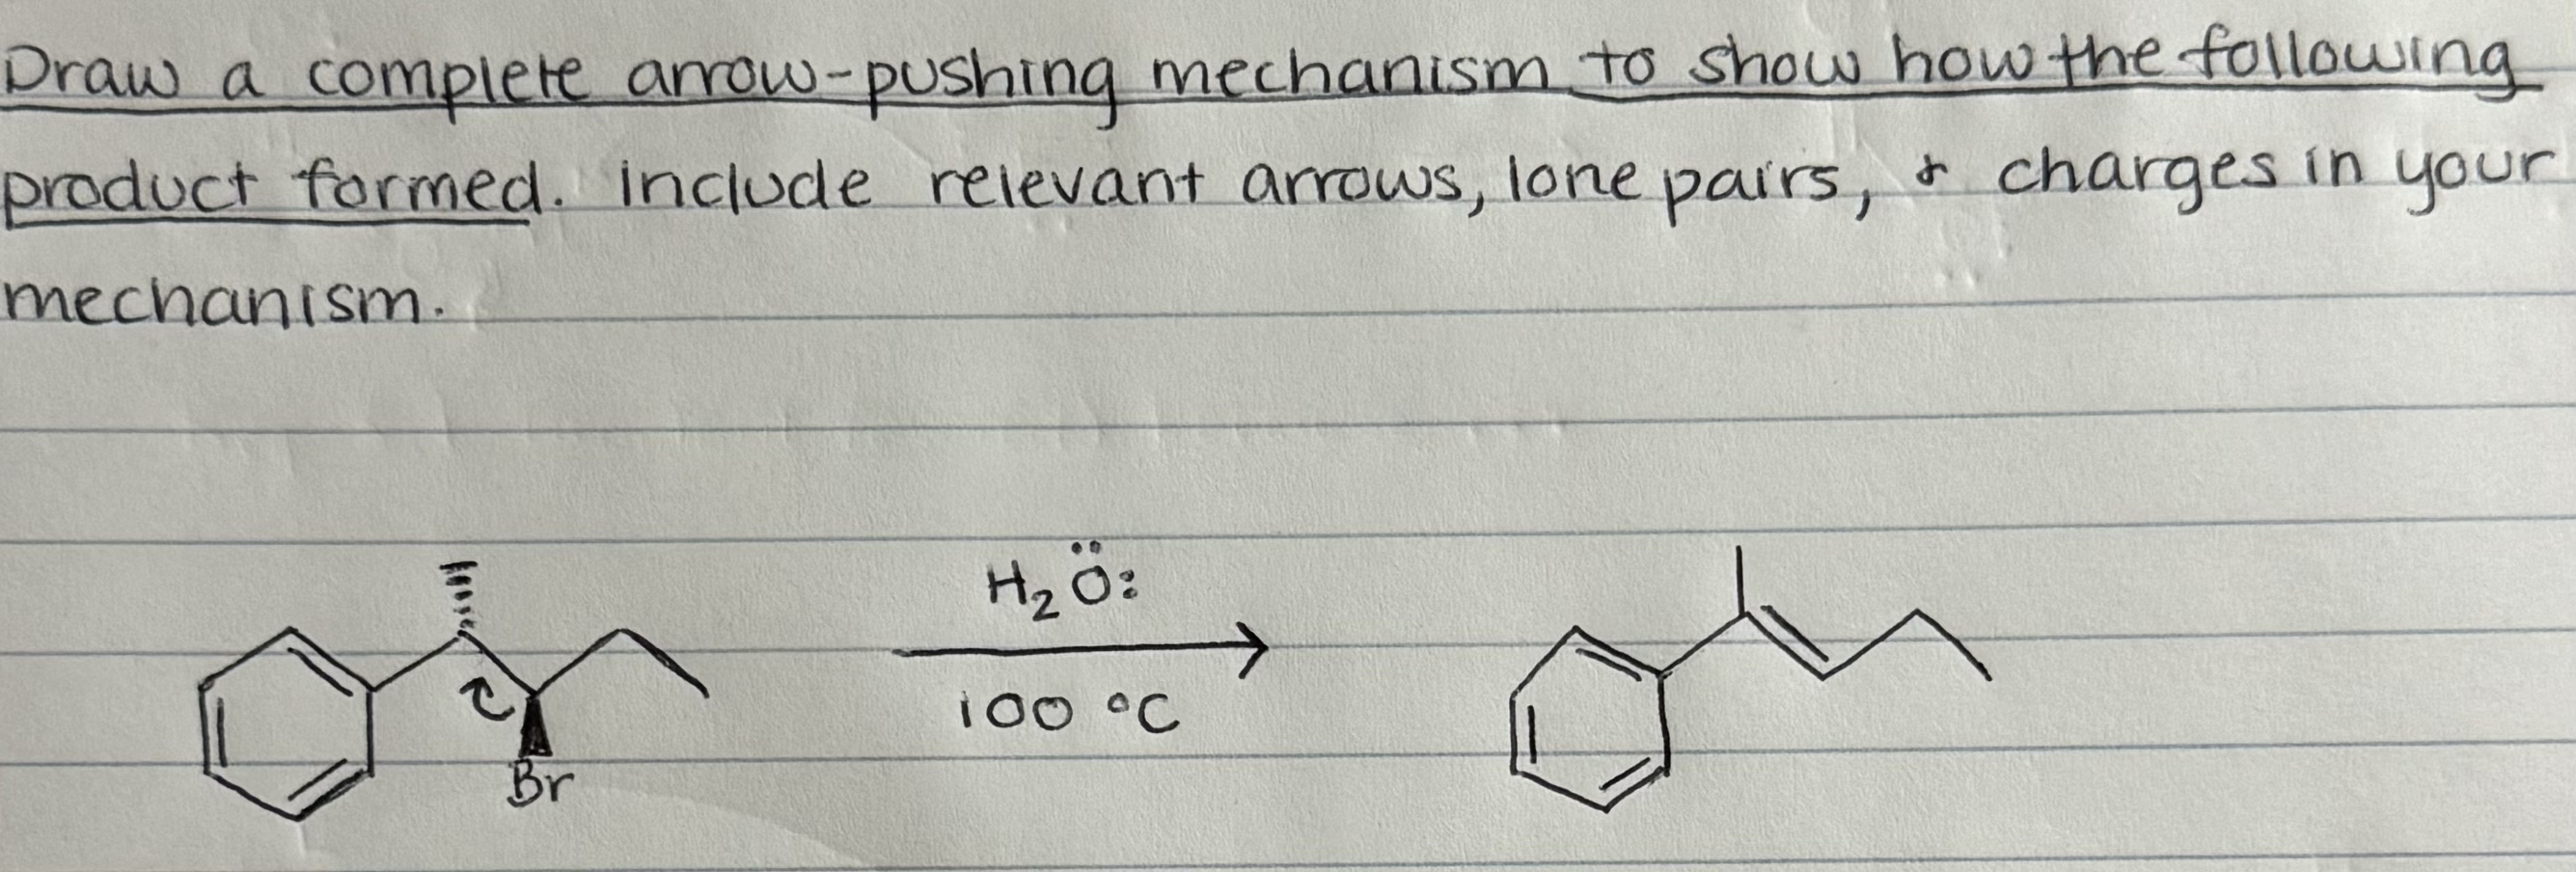 Draw a complete arrow-pushing mechanism to show how the following
product formed. Include relevant arrows, lone pairs, & charges in your
mechanism.
H₂Ö:
100 °C
Br